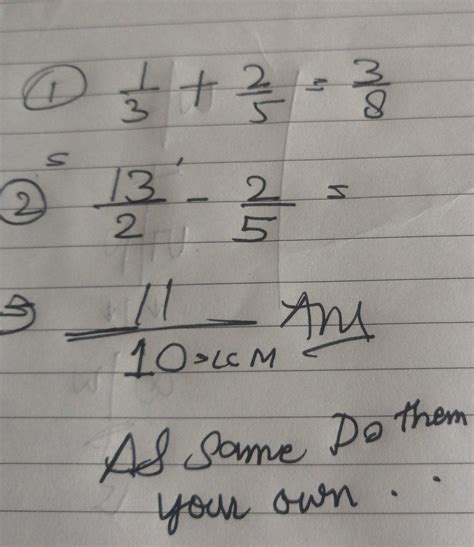 ① 1/3 + 2/5 = 3/8
② 5 13/2 ' - 2/5 =
⇒ 11/10 = LCM Ans
As same Do them
your own . . .